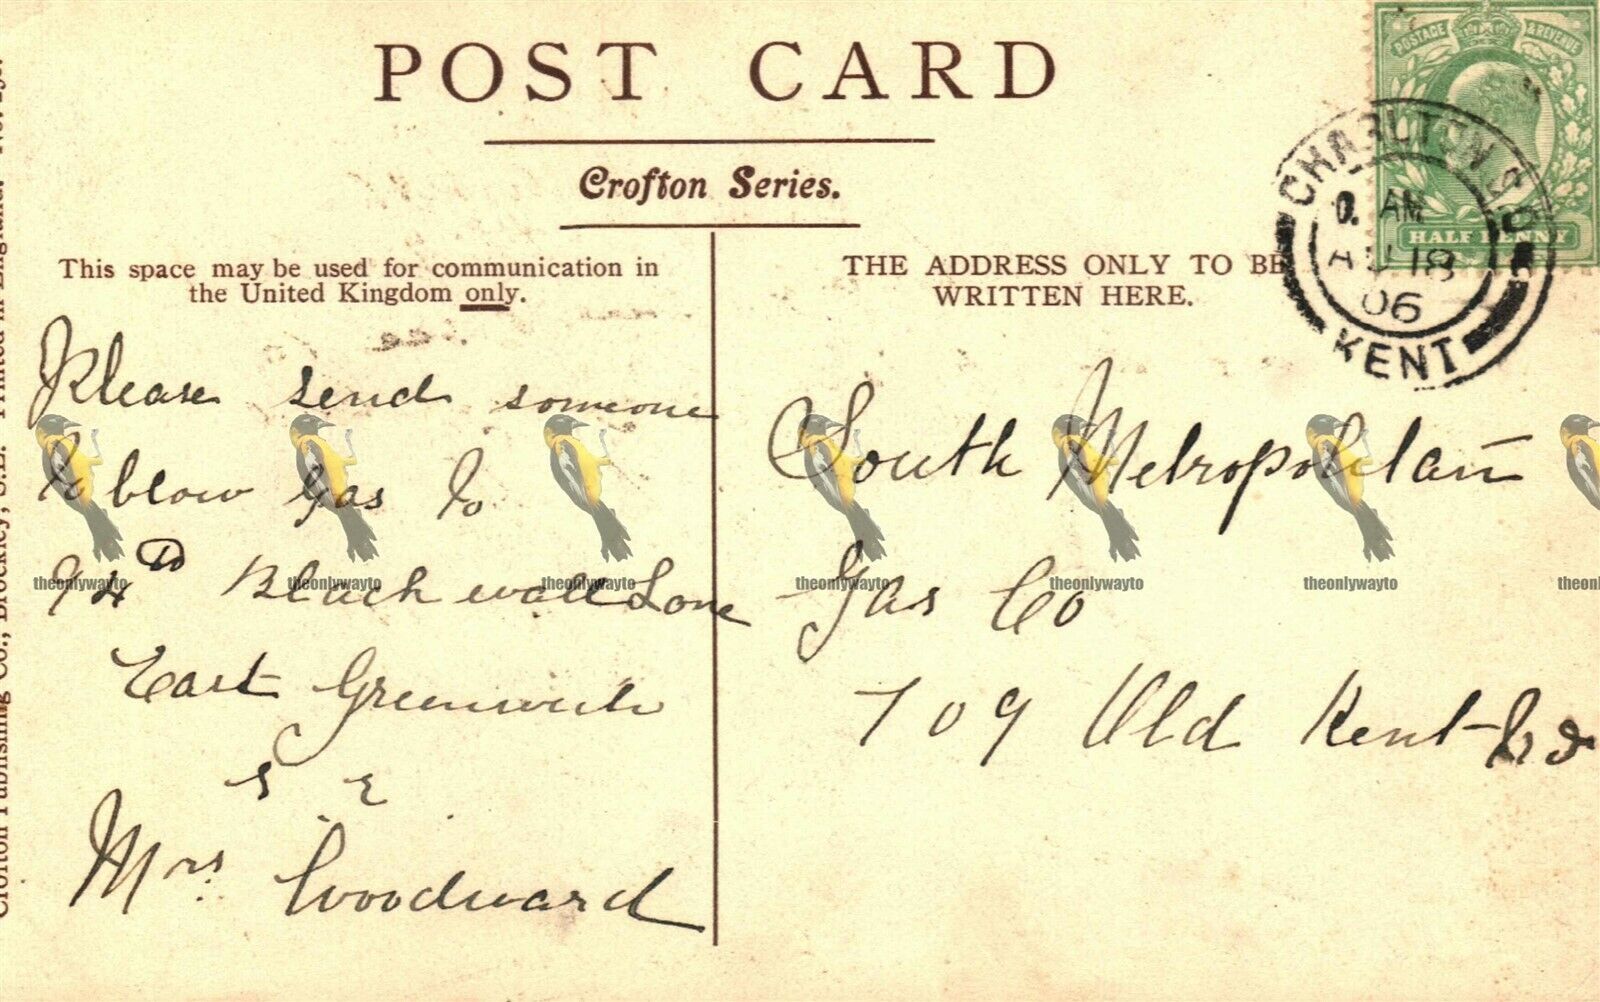 POST CARD
Crofton Series.
This space may be used for communication in
the United Kingdom only.
THE ADDRESS ONLY TO BE
WRITTEN HERE.
POSTAGE & REVENUE
HALF PENNY
CHARLTON
AM
AU 18
06
KENT
Please send someone
to blow gas to
94 Blackwall Lane
East Greenwich
S E
Mrs Woodward
South Metropolitan
Gas Co
709 Old Kent Rd
Crofton Publishing Co., Brockley, S.E. Printed in England.
theonlywayto theonlywayto theonlywayto theonlywayto theonlywayto theonlywayto